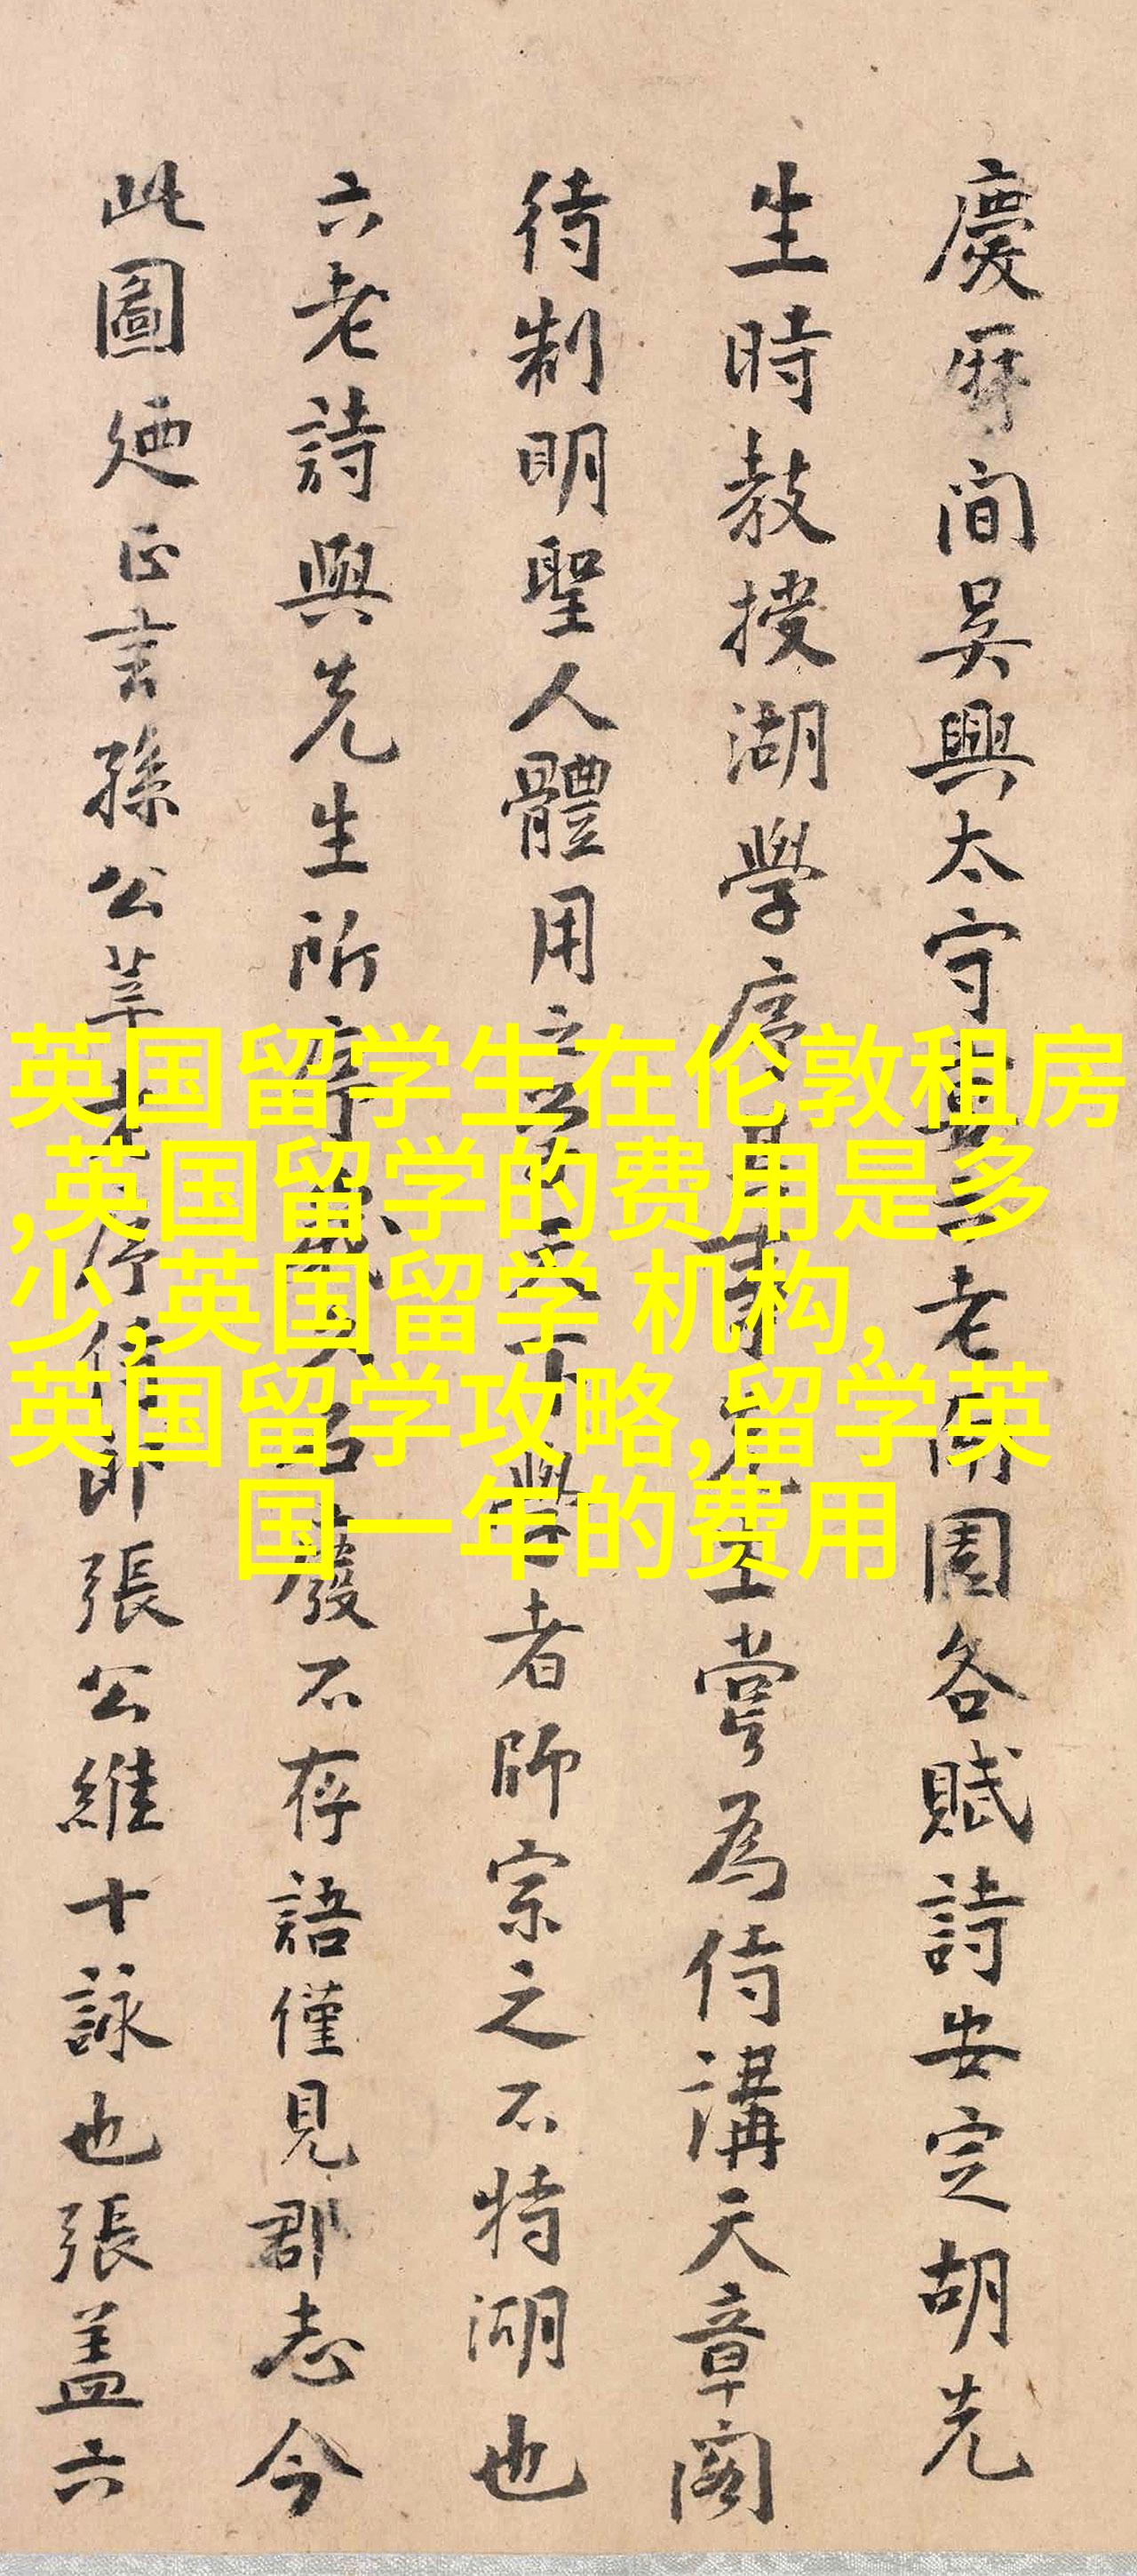 慶厤間吳興太守馬六老南園各賦詩安定胡先
生時教授湖學序其事先生嘗為侍講天章閣
待制明聖人體用之學天下學者師宗之不特湖也
六老詩與先生所序歲久石廢不存語僅見郡志今
此圖廼正言孫公莘老序侍郎張公維十詠也張盖六
英国留学生在伦敦租房
,英国留学的费用是多
少,英国留学 机构,
英国留学攻略,留学英
国一年的费用